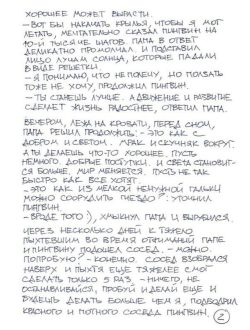 ХОРОШЕЕ МОЖЕТ ВЫРАСТИ.
- ВОТ БЫ НАКАЧАТЬ КРЫЛЬЯ, ЧТОБЫ Я МОГ
ЛЕТАТЬ, МЕЧТАТЕЛЬНО СКАЗАЛ ПИНГВИН НА
10-И ТЫСЯЧЕ ШАГОВ. ПАПА В ОТВЕТ
ДЕЛИКАТНО ПРОМОЛЧАЛ. И ПОДСТАВИЛ
ЛИЦО ЛУЧАМ СОЛНЦА, КОТОРЫЕ ПАДАЛИ
В ВИДЕ РЕШЕТКИ.
- Я ПОНИМАЮ, ЧТО НЕ ПОЛЕЧУ, НО ПОЛЗАТЬ
ТОЖЕ НЕ ХОЧУ, ПРОДОЛЖИЛ ПИНГВИН.
- ТЫ СТАНЕШЬ ЛУЧШЕ. А ДВИЖЕНИЕ И РАЗВИТИЕ
СДЕЛАЕТ ЖИЗНЬ РАДОСТНЕЕ, ОТВЕТИЛ ПАПА.
ВЕЧЕРОМ, ЛЕЖА НА КРОВАТИ, ПЕРЕД СНОМ,
ПАПА РЕШИЛ ПРОДОЛЖИТЬ: - ЭТО КАК С
ДОБРОМ И СВЕТОМ. МРАК И СКУКА ВОКРУГ.
А ТЫ ДЕЛАЕШЬ ЧТО-ТО ХОРОШЕЕ. ПУСТЬ
НЕМНОГО. ДОБРЫЕ ПОСТУПКИ. И СВЕТА СТАНОВИТ-
СЯ БОЛЬШЕ, МИР МЕНЯЕТСЯ. ПУСТЬ НЕ ТАК
БЫСТРО КАК ВСЕ ХОТЯТ.
- ЭТО КАК ИЗ МЕЛКОЙ НЕНУЖНОЙ ГАЛЬКИ
МОЖНО СООРУДИТЬ ГНЕЗДО? УТОЧНИЛ
ПИНГВИН.
- ВРОДЕ ТОГО :), ХМЫКНУЛ ПАПА И ВЫРУБИЛСЯ.
ЧЕРЕЗ НЕСКОЛЬКО ДНЕЙ К ТЯЖЕЛО
ПЫХТЕВШИМ ВО ВРЕМЯ ОТЖИМАНИЙ ПАПЕ
И ПИНГВИНУ ПОДОШЕЛ СОСЕД. - МОЖНО
ПОПРОБУЮ? - КОНЕЧНО. СОСЕД ВЗОБРАЛСЯ
НАВЕРХ И ПЫХТЯ ЕЩЕ ТЯЖЕЛЕЕ СМОГ
СДЕЛАТЬ ТОЛЬКО 5 РАЗ. - НИЧЕГО, НЕ
ОСТАНАВЛИВАЙСЯ, ПРОБУЙ И ДЕЛАЙ ЕЩЕ И
БУДЕШЬ ДЕЛАТЬ БОЛЬШЕ ЧЕМ Я, ПОДБОДРИЛ
КРАСНОГО И ПОТНОГО СОСЕДА ПИНГВИН.
2